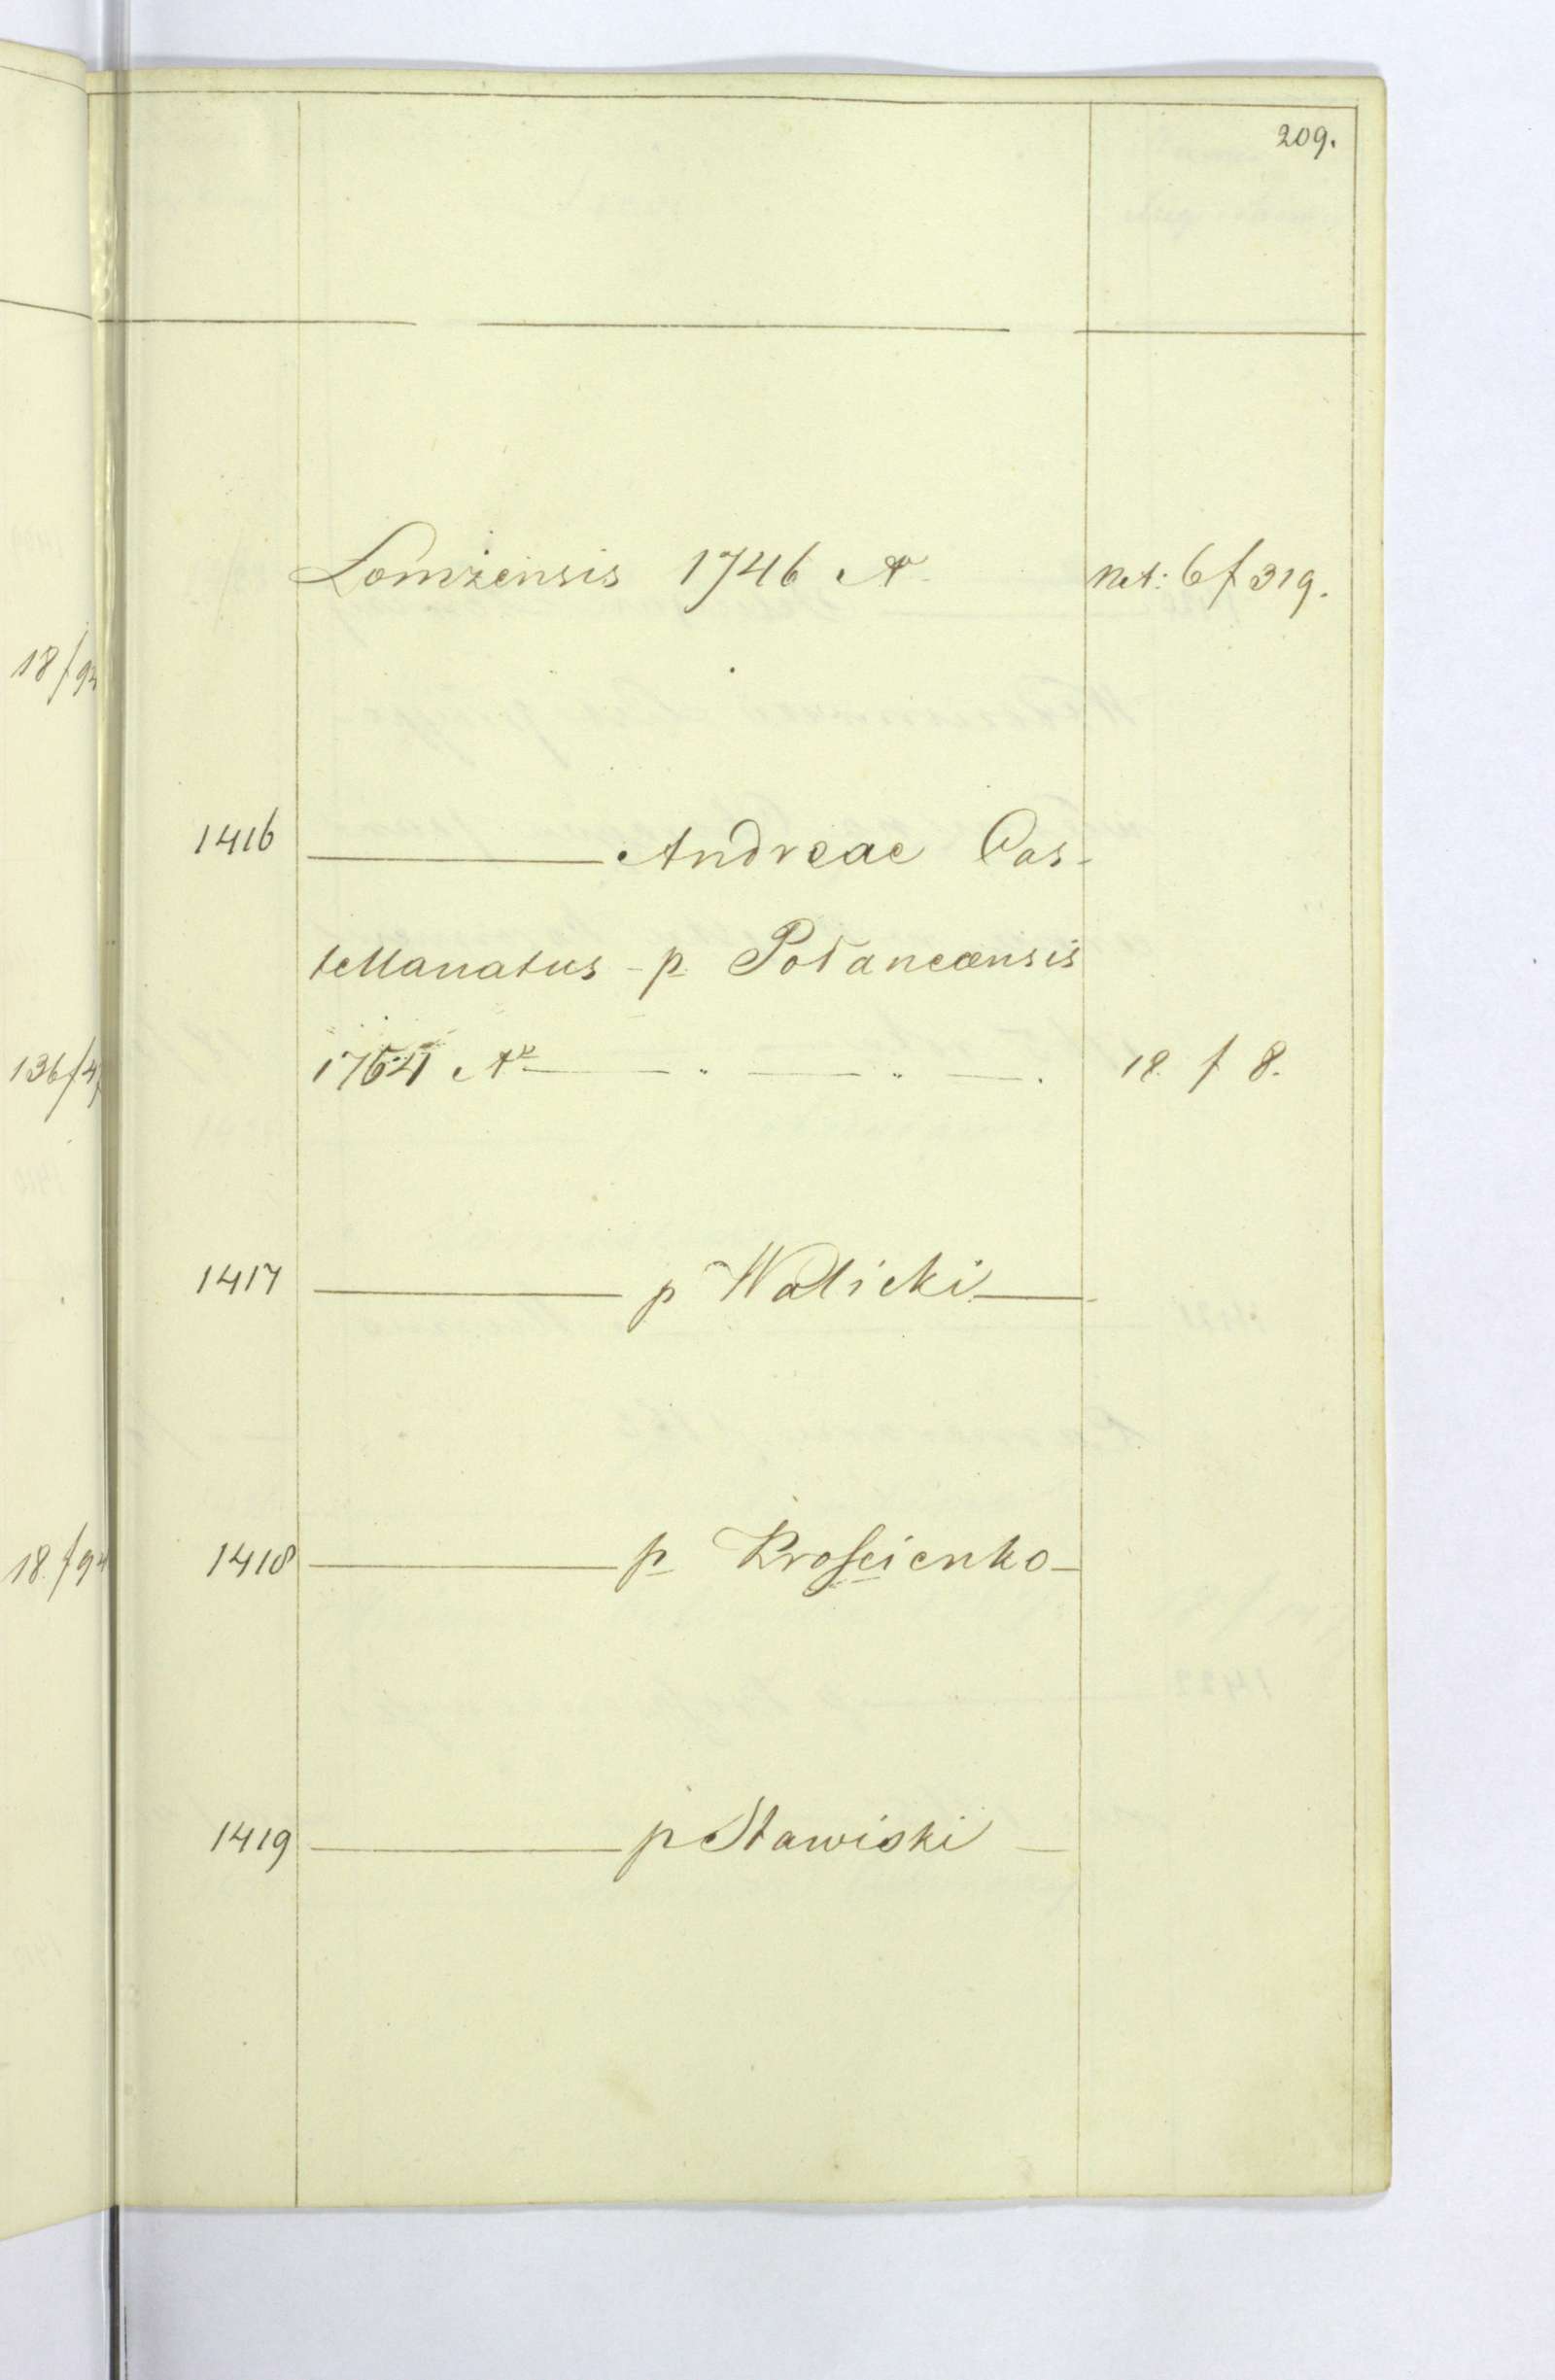 209.
Lomżensis 1746 Ao net: 6 f 319.
18/94
1416 Andreae Cas-
tellanatus - p Połaneænsis
136/4
1764 Ao " " . 18. f 8.
1417 p Walicki
18. f 94
1418 p Krościenko
1419 p Stawiski